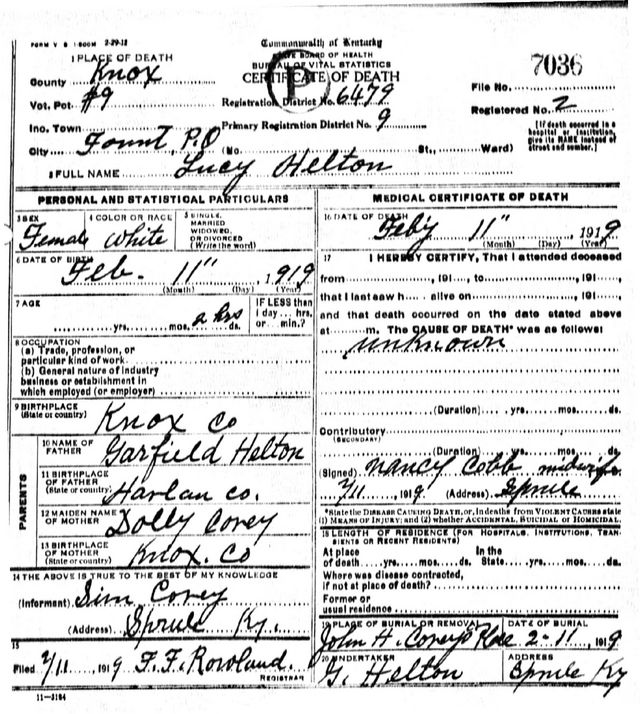 FORM V S 1-500M 2-29-12
Commonwealth of Kentucky
STATE BOARD OF HEALTH
BUREAU OF VITAL STATISTICS
CERTIFICATE OF DEATH
P
7036
1 PLACE OF DEATH
County Knox
Vot. Pct #9
Registration District No. 6479
File No.
Inc. Town
Primary Registration District No. 9
Registered No. 2
City Fount, P.O (No. St., Ward)
[If death occurred in a hospital or institution, give its NAME instead of street and number.]
2 FULL NAME Lucy Helton
PERSONAL AND STATISTICAL PARTICULARS
3 SEX Female
4 COLOR OR RACE White
5 SINGLE, MARRIED WIDOWED, OR DIVORCED (Write the word)
6 DATE OF BIRTH Feb- 11", 1919
(Month) (Day) (Year)
7 AGE
yrs. mos. 2 hrs ds.
IF LESS than 1 day... hrs. or... min.?
8 OCCUPATION
(a) Trade, profession, or particular kind of work
(b) General nature of industry business or establishment in which employed (or employer)
9 BIRTHPLACE (State or country) Knox Co
PARENTS
10 NAME OF FATHER Garfield Helton
11 BIRTHPLACE OF FATHER (State or country) Harlan co.
12 MAIDEN NAME OF MOTHER Dolly Corey
13 BIRTHPLACE OF MOTHER (State or country) Knox. Co
14 THE ABOVE IS TRUE TO THE BEST OF MY KNOWLEDGE
(Informant) Sim Corey
(Address) Sprule Ky.
15
Filed 2/11, 1919 F. F. Rowland.
REGISTRAR
11-3184
MEDICAL CERTIFICATE OF DEATH
16 DATE OF DEATH Feby 11" 1919
(Month) (Day) (Year)
17 I HEREBY CERTIFY, That I attended deceased
from, 191 to, 191,
that I last saw h alive on, 191,
and that death occurred on the date stated above
at m. The CAUSE OF DEATH* was as follows:
unknown
(Duration) yrs. mos. ds.
Contributory (SECONDARY)
(Duration) yrs. mos. ds.
(Signed) Nancy Cobb midwife
2/11 1919 (Address) Sprule
*State the DISEASE CAUSING DEATH, or, in deaths from VIOLENT CAUSES state
(1) MEANS OF INJURY; and (2) whether ACCIDENTAL, SUICIDAL or HOMICIDAL.
18 LENGTH OF RESIDENCE (FOR HOSPITALS, INSTITUTIONS, TRANSIENTS OR RECENT RESIDENTS)
At place of death yrs. mos. ds. In the State yrs. mos. ds.
Where was disease contracted, if not at place of death?
Former or usual residence
19 PLACE OF BURIAL OR REMOVAL John H. Coreys Place
DATE OF BURIAL 2-11, 1919
20 UNDERTAKER G. Helton
ADDRESS Sprule Ky